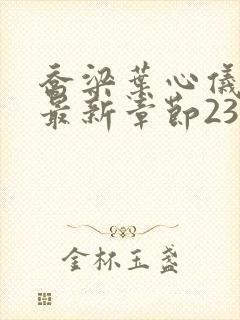 乔梁叶心仪
最新章节23
金杯玉盏